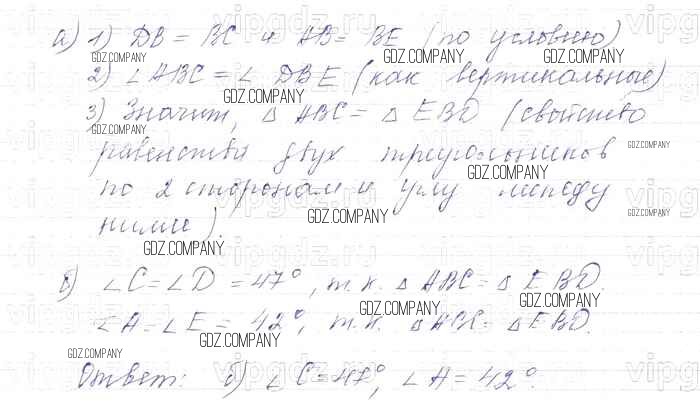 а) 1) DB = BC и AB = BE (по условию)
2) ∠ ABC = ∠ DBE (как вертикальные)
3) Значит, △ ABC = △ EBD (свойство
равенства двух треугольников
по 2 сторонам и углу между
ними).
б) ∠C = ∠D = 47°, т.к. △ ABC = △ EBD.
∠A = ∠E = 42°, т.к. △ABC = △EBD.
Ответ: б) ∠C = 47°, ∠A = 42°.
GDZ.COMPANY
GDZ.COMPANY
GDZ.COMPANY
GDZ.COMPANY
GDZ.COMPANY
GDZ.COMPANY
GDZ.COMPANY
GDZ.COMPANY
GDZ.COMPANY
GDZ.COMPANY
GDZ.COMPANY
GDZ.COMPANY
GDZ.COMPANY
GDZ.COMPANY